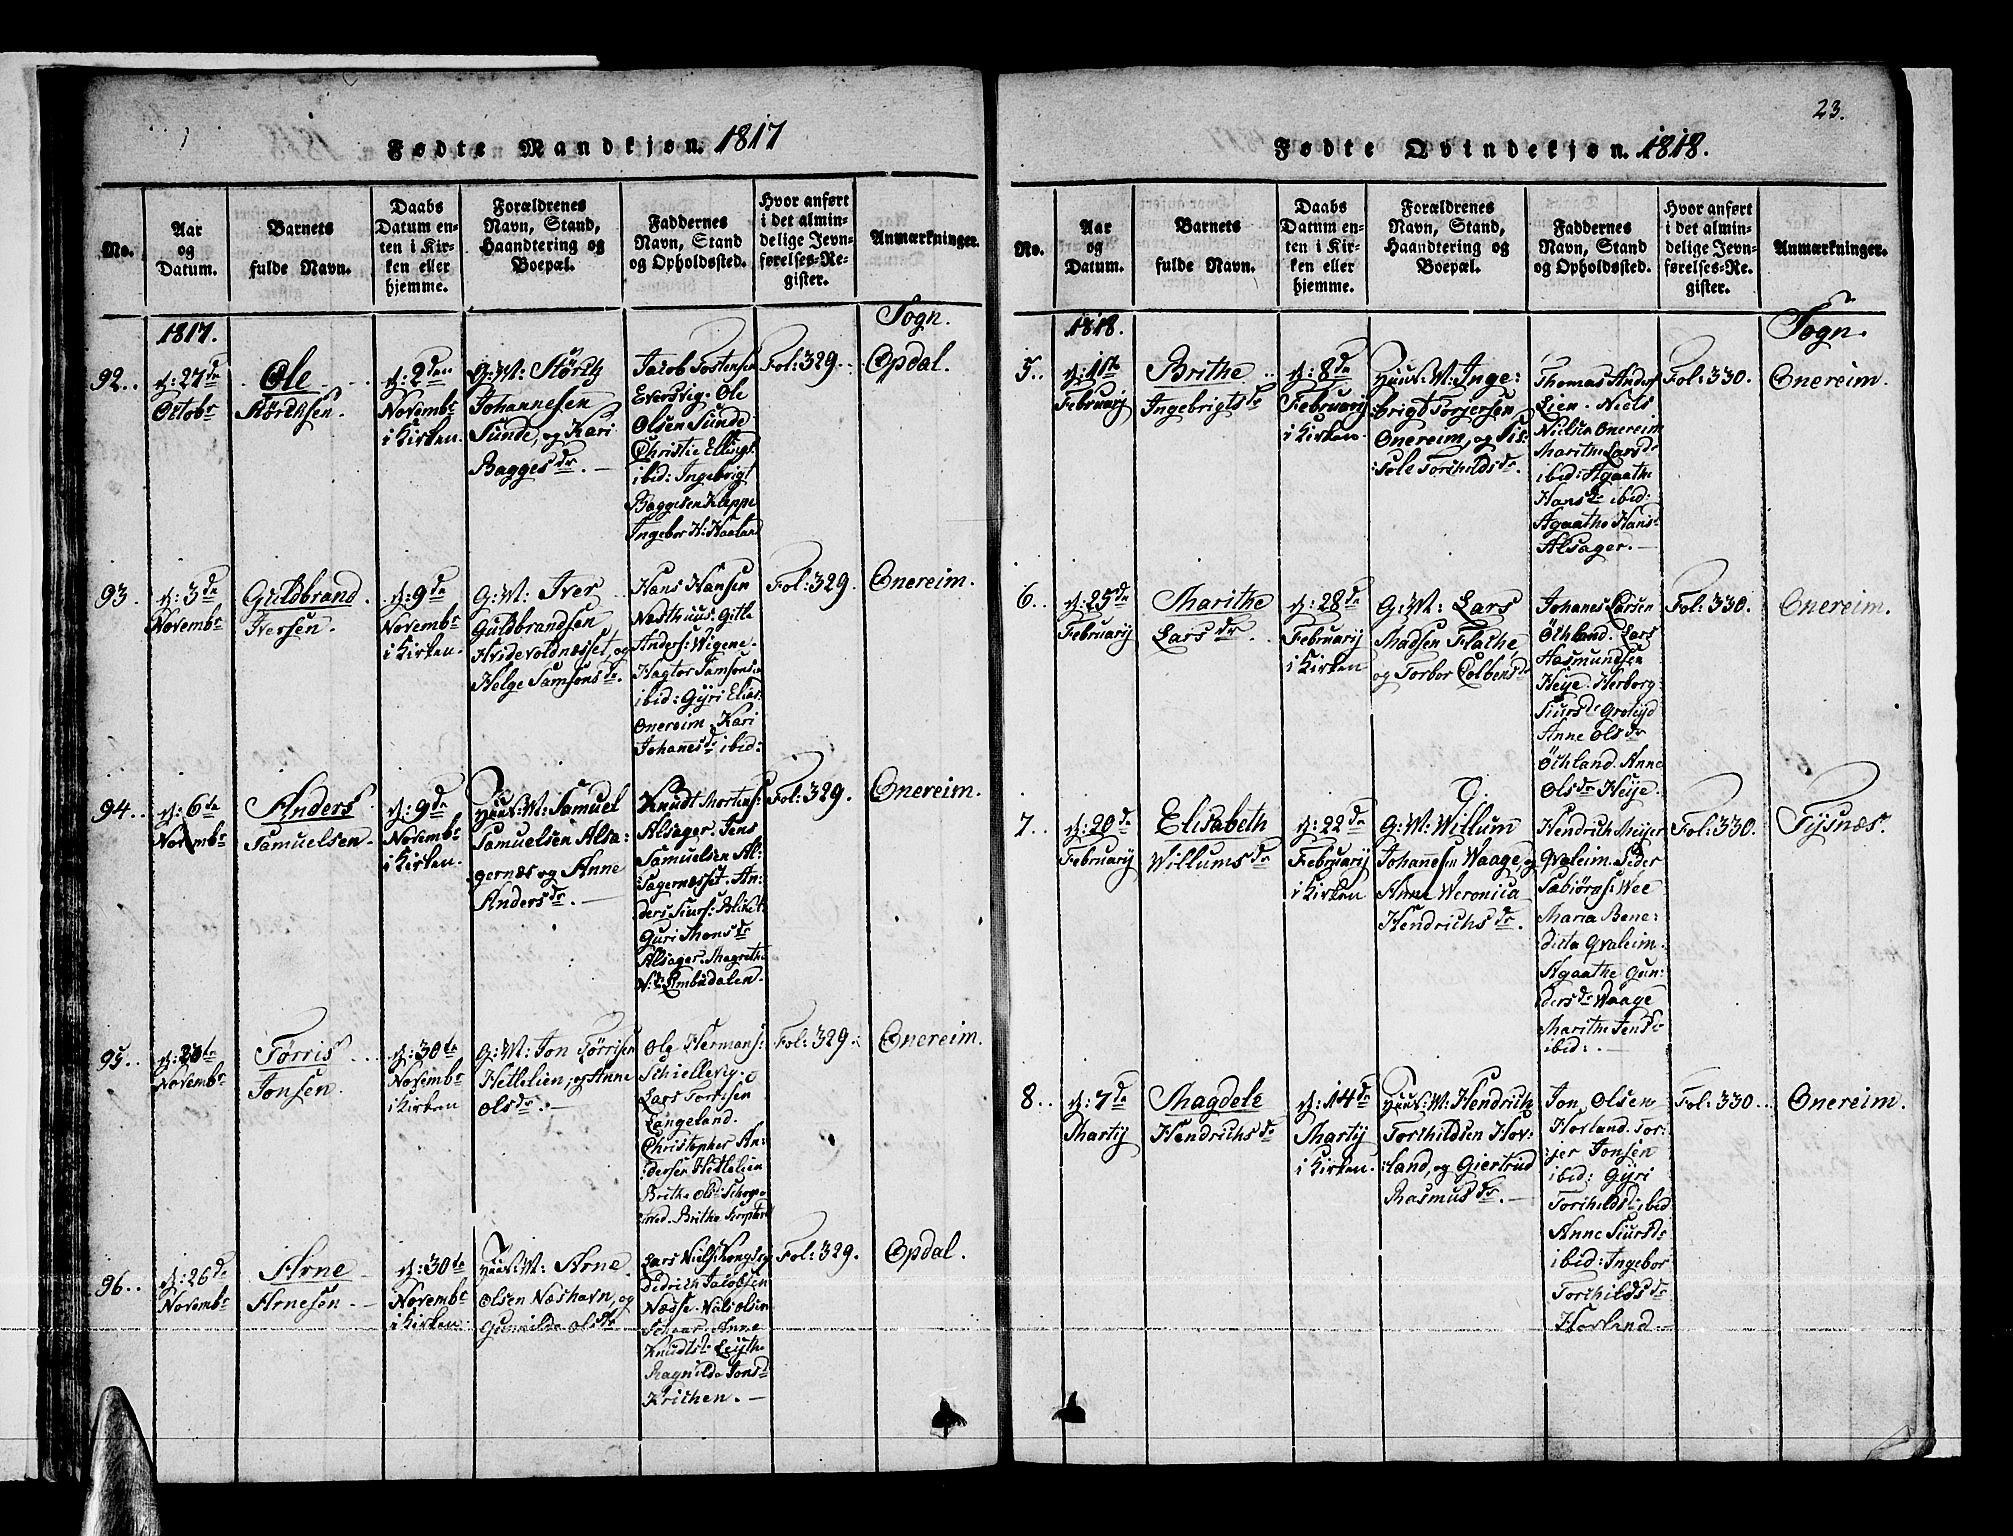 Fødte Mandkjøn. 1817
No.
Aar
og
Datum.
Barnets
fulde Navn.
Daabs
Datum en-
ten i Kir-
ken eller
hjemme.
Forældrenes
Navn, Stand,
Haandtering og
Boepæl.
Faddernes
Navn, Stand
og Opholdssted.
Hvor anført
i det almin-
delige Jevn-
førelses-Re-
gister.
Anmærkninger.
1817.
Sogn.
92.
d: 27de
Octobr
Ole
Störchsen.
d: 2den
Novembr
i Kirken.
G: M: Störch
Johannesen
Sunde, og Kari
Baggesdr.
Jacob Tostensen
Eversvig. Ole
Olsen Sunde
Christie Ellings
ibid: Ingebrigt
Baggesen Kleppe
Ingebor H: Haaland
Fol: 329.
Opdal.
93.
d: 3de
Novembr
Guldbrand
Iversen.
d: 9de
Novembr
i Kirken.
G: M: Iver
Guldbrandsen
Hvidevoldnæsset, og
Helge Samsonsdr.
Hans Hansen
Næsthuus. Gitle
Anders: Wigene.
Hagtor Samsonsen
ibid: Gyri Elias:
Onereim. Kari
Johanesdr ibid:
Fol: 329.
Onereim.
94.
d: 6te
Novembr
Anders
Samuelsen.
d: 9de
Novembr
i Kirken.
Huus: M: Samuel
Samuelsen Alsa:
gernæs og Anne
Andersdr.
Knudt Mortens:
Alsager. Jens
Samuelsen Al:
sagernæsset. An:
ders Siurs:
Guri Monsdr
Alsager. Magrethe
Fol: 329.
Onereim.
95.
Novembr
Törris
Jonsen.
d: 30te
Novembr
i Kirken
G: M: Jon Törrisen
Hetlelien, og Anne
Olsdr.
Ole Hermans:
Schiellevig.
Lars Torrisen
Langeland.
Christopher An:
dersen Hetlelien
Brithe Olsd:
Fol: 329.
Onereim.
96.
d: 26de
Novembr
Arne
Arnesen.
d: 30te
Novembr
i Kirken.
Huus: M: Arne
Olsen Næshavn, og
Gunnilde Olsdr
Didrich Jacobsen
Nædse. Nils Olsen
Schaar. Anne
Ragnilde Jonsd
Krichen.
Fol: 329.
Opdal.
23.
Fødte Qvindekjøn. 1818.
No.
Aar
og
Datum.
Barnets
fulde Navn.
Daabs
Datum en-
ten i Kir-
ken eller
hjemme.
Forældrenes
Navn, Stand,
Haandtering og
Boepæl.
Faddernes
Navn, Stand
og Opholdssted.
Hvor anført
i det almin-
delige Jevn-
førelses-Re-
gister.
Anmærkninger.
1818.
Sogn.
5.
d: 1ste
Februarij
Brithe
Ingebrigtsdr
d: 8de
Februarij
i Kirken.
Huus: M: Inge:
brigt Torjersen
Onereim, og Sis:
:sele Torchildsdr.
Thomas Anders
Lien. Niels
Nielsen Onereim
Marithe Larsdr
ibid: Agaathe
Hansdr ibid:
Agaathe Hans
Alsager.
Fol: 330.
Onereim.
6.
d: 25de
Februarij
Marithe
Larsdr.
d: 28de
Februarij
i Kirken
G: M: Lars
Madsen Flathe,
og Torbor Colbensdr
Johanes Larsen
Öthland. Lars
Hasmundsen
Heye. Herborg
Siursdr
Anne Olsdr
Öthland. Anne
Olsdr Heye.
Fol: 330.
Onereim.
7.
d: 20de
Februarij
Elisabeth
Willumsdr
d: 22de
Februarij
i Kirken
G: M: Willum
Johannesen Waage, og
Anne Weronica
Hendrichsdr.
Hendrich Meyer
Qvaleim. Peder
Maria Bene:
dicta Qvaleim.
Agaathe Gun:
dersdr Waage
Marithe Jensdr
ibid:
Fol: 330.
Tysnæs.
8.
d: 7de
Martij
Magdele
Hendrichsdr
d: 14de
Martij
i Kirken.
Huus: M: Hendrich
Torchildsen Hov:
:land, og Giertrud
Rasmusdr.
Jon Olsen
Hovland. Tor:
:jer Jonsen
ibid: Gyri
Torchildsdr ibid
Anne Siursdr
ibid: Ingebor
Torchildsdr
Hovland.
Fol: 330.
Onereim.